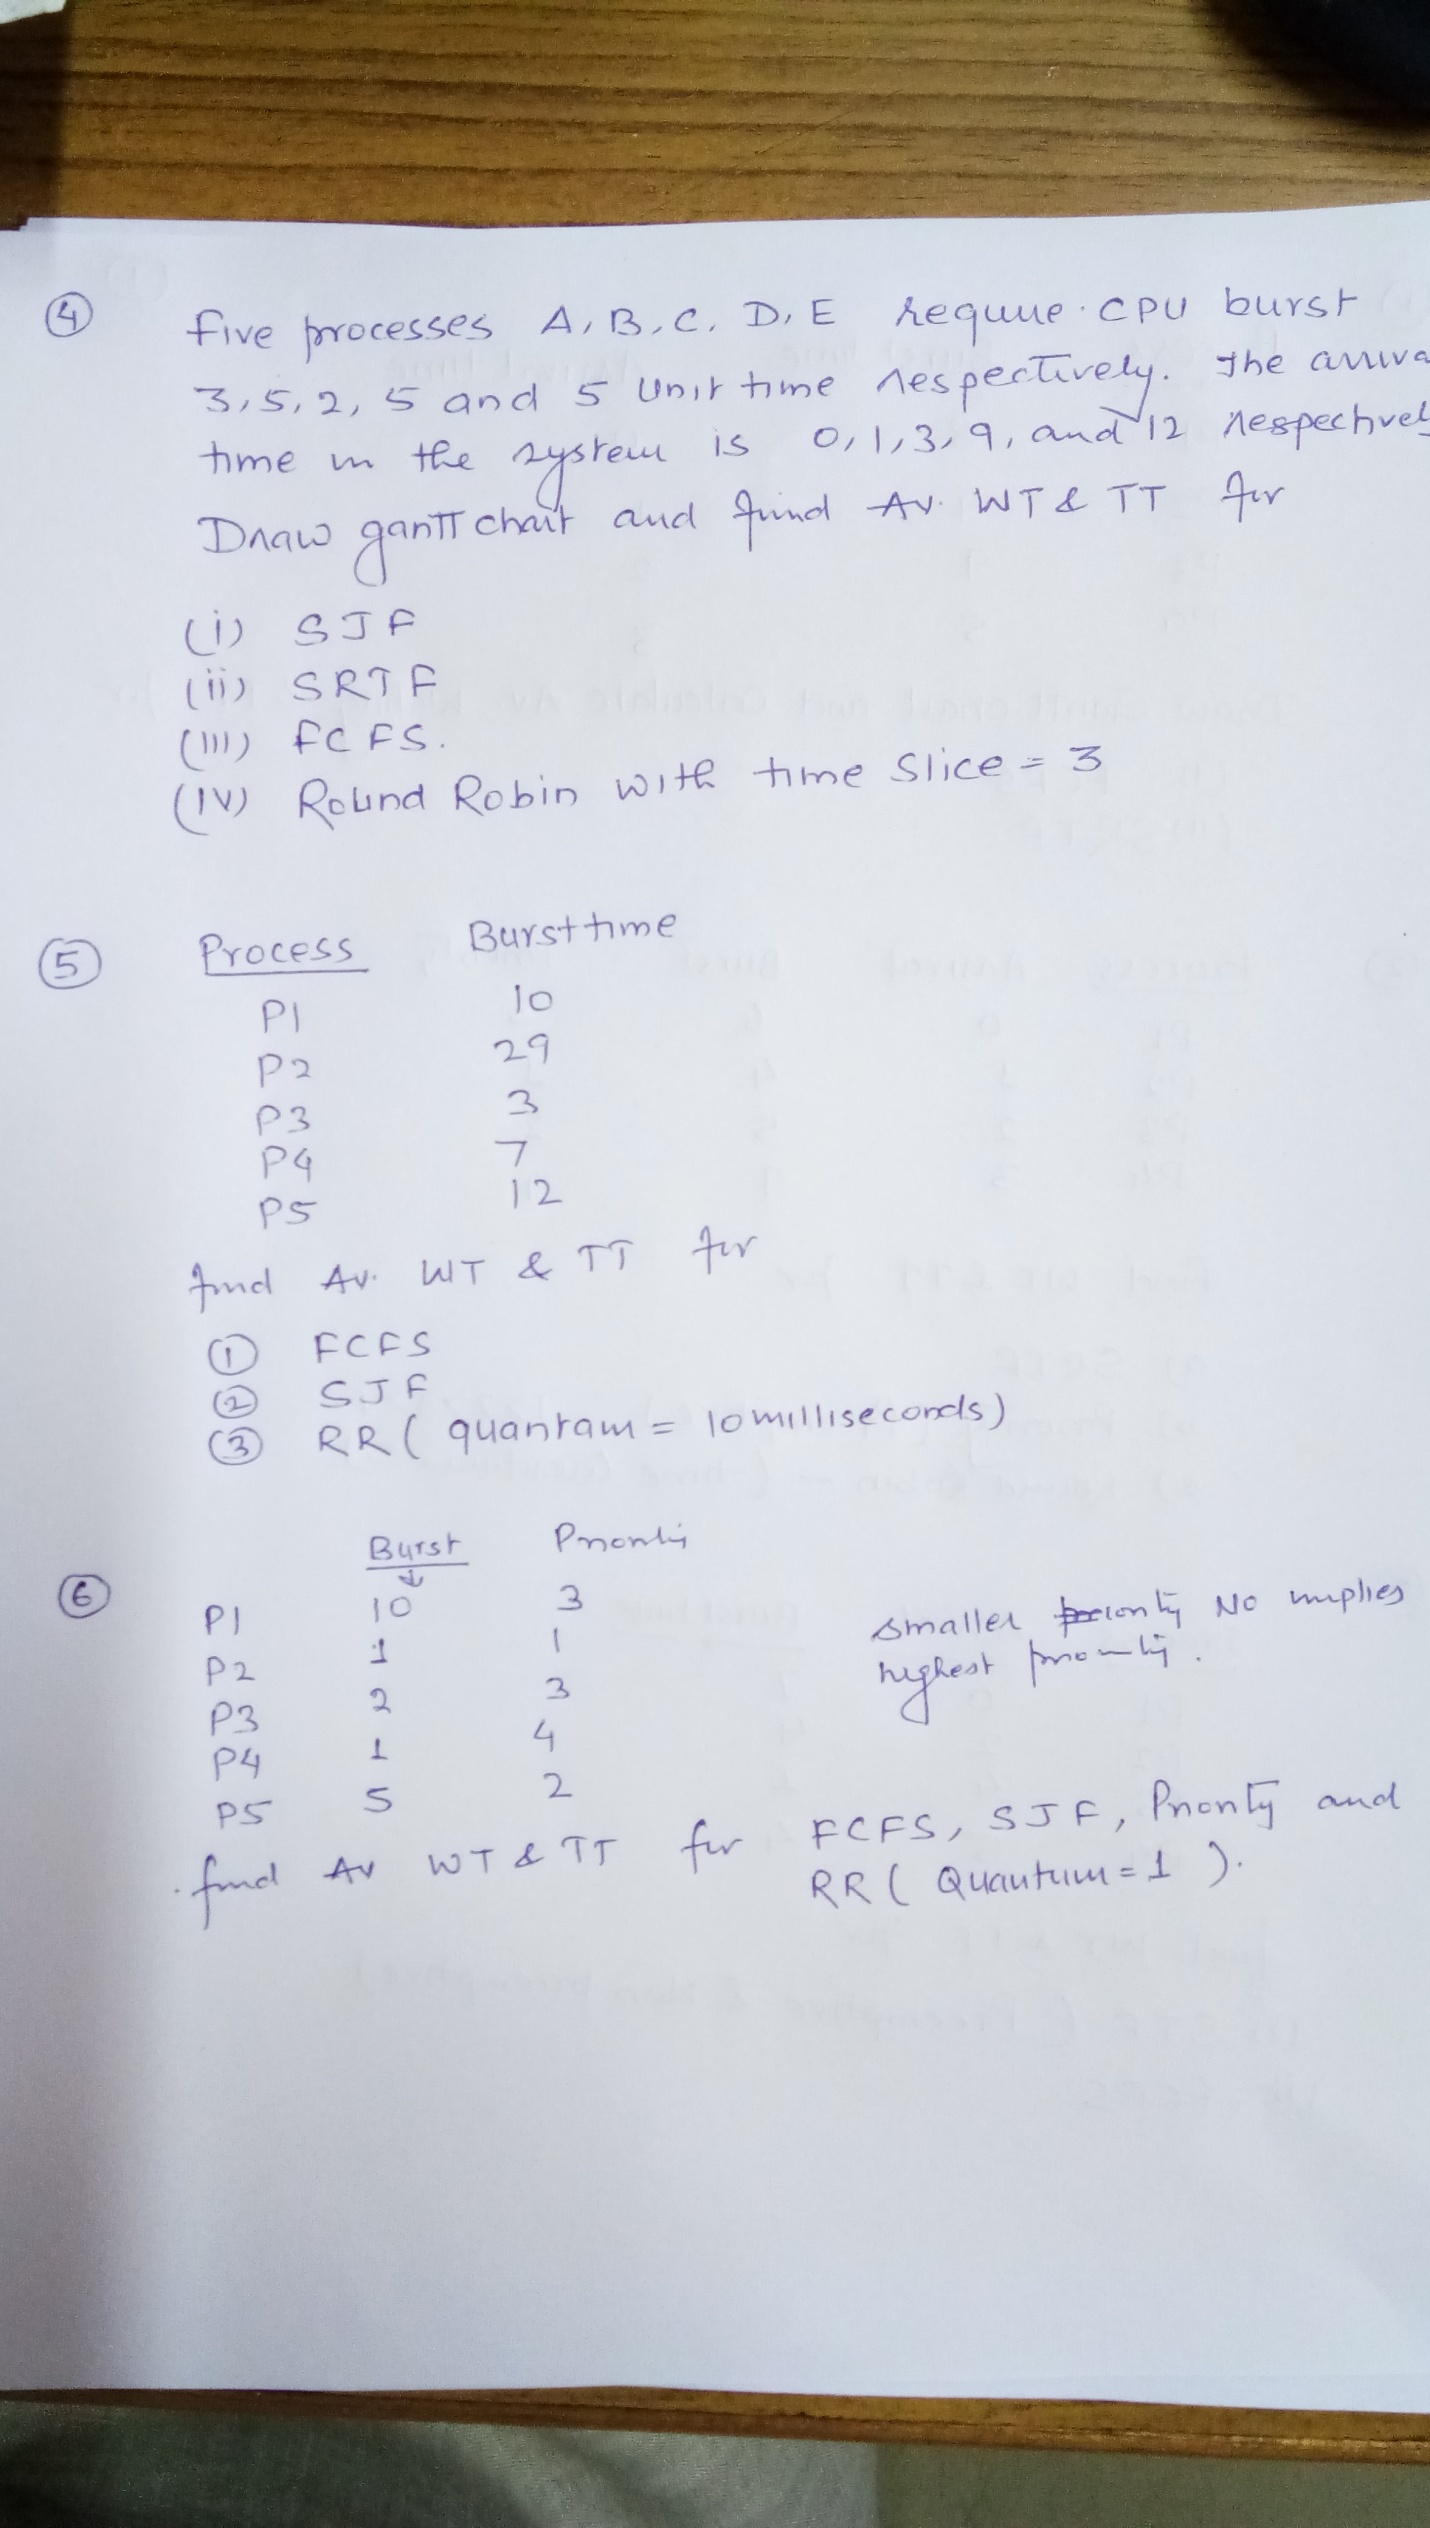 ④ Five processes A, B, C, D, E require CPU burst
3, 5, 2, 5 and 5 Unit time respectively. The arriva
time in the system is 0, 1, 3, 9, and 12 respectivel
Draw gantt chart and find Av. WT & TT for
(i) SJF
(ii) SRTF
(III) FCFS.
(IV) Round Robin with time Slice = 3
⑤ Process Burst time
P1 10
P2 29
P3 3
P4 7
P5 12
find Av. WT & TT for
① FCFS
② SJF
③ RR ( quantam = 10 milliseconds)
⑥ Burst Priority
P1 10 3
P2 1 1
P3 2 3
P4 1 4
P5 5 2
smaller priority No implies
highest priority.
find Av WT & TT for FCFS, SJF, Priority and
RR ( Quantum = 1 ).